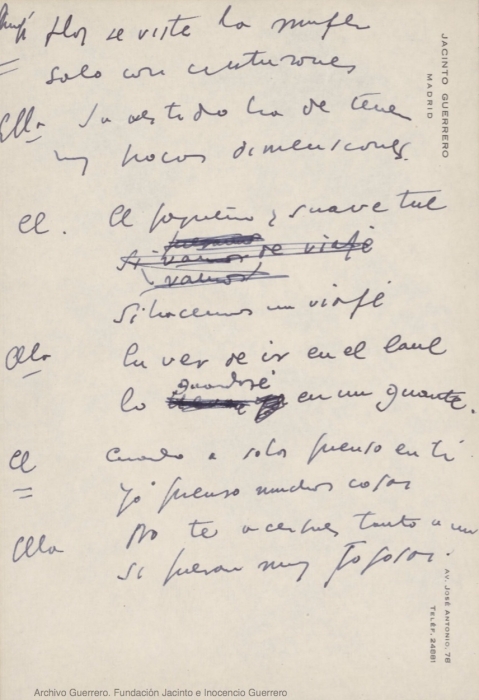 flor se viste la mujer
solo con cinturones
Ella Su vestido ha de tener
muy pocas dimensiones.
El. El pequeño y suave tul
si vamos de viaje
vamos
Si hacemos un viaje
Ella En vez de ir en el baul
guardaré
lo en un guante.
El Cuando a solas pienso en ti
yo pienso muchas cosas
Ella No te acerques tanto a mi
si fueran muy fogosas.
JACINTO GUERRERO
MADRID
AV. JOSÉ ANTONIO, 78
TELÉF. 24681
Archivo Guerrero. Fundación Jacinto e Inocencio Guerrero